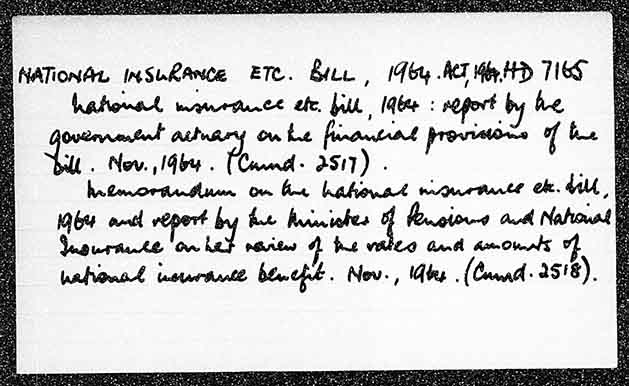 NATIONAL INSURANCE ETC. BILL, 1964. ACT, 1964. HD 7165
National insurance etc. bill, 1964 : report by the
government actuary on the financial provisions of the
bill. Nov., 1964. (Cmnd. 2517).
Memorandum on the national insurance etc. bill,
1964 and report by the Minister of Pensions and National
Insurance on her review of the rates and amounts of
national insurance benefit. Nov., 1964. (Cmnd. 2518).